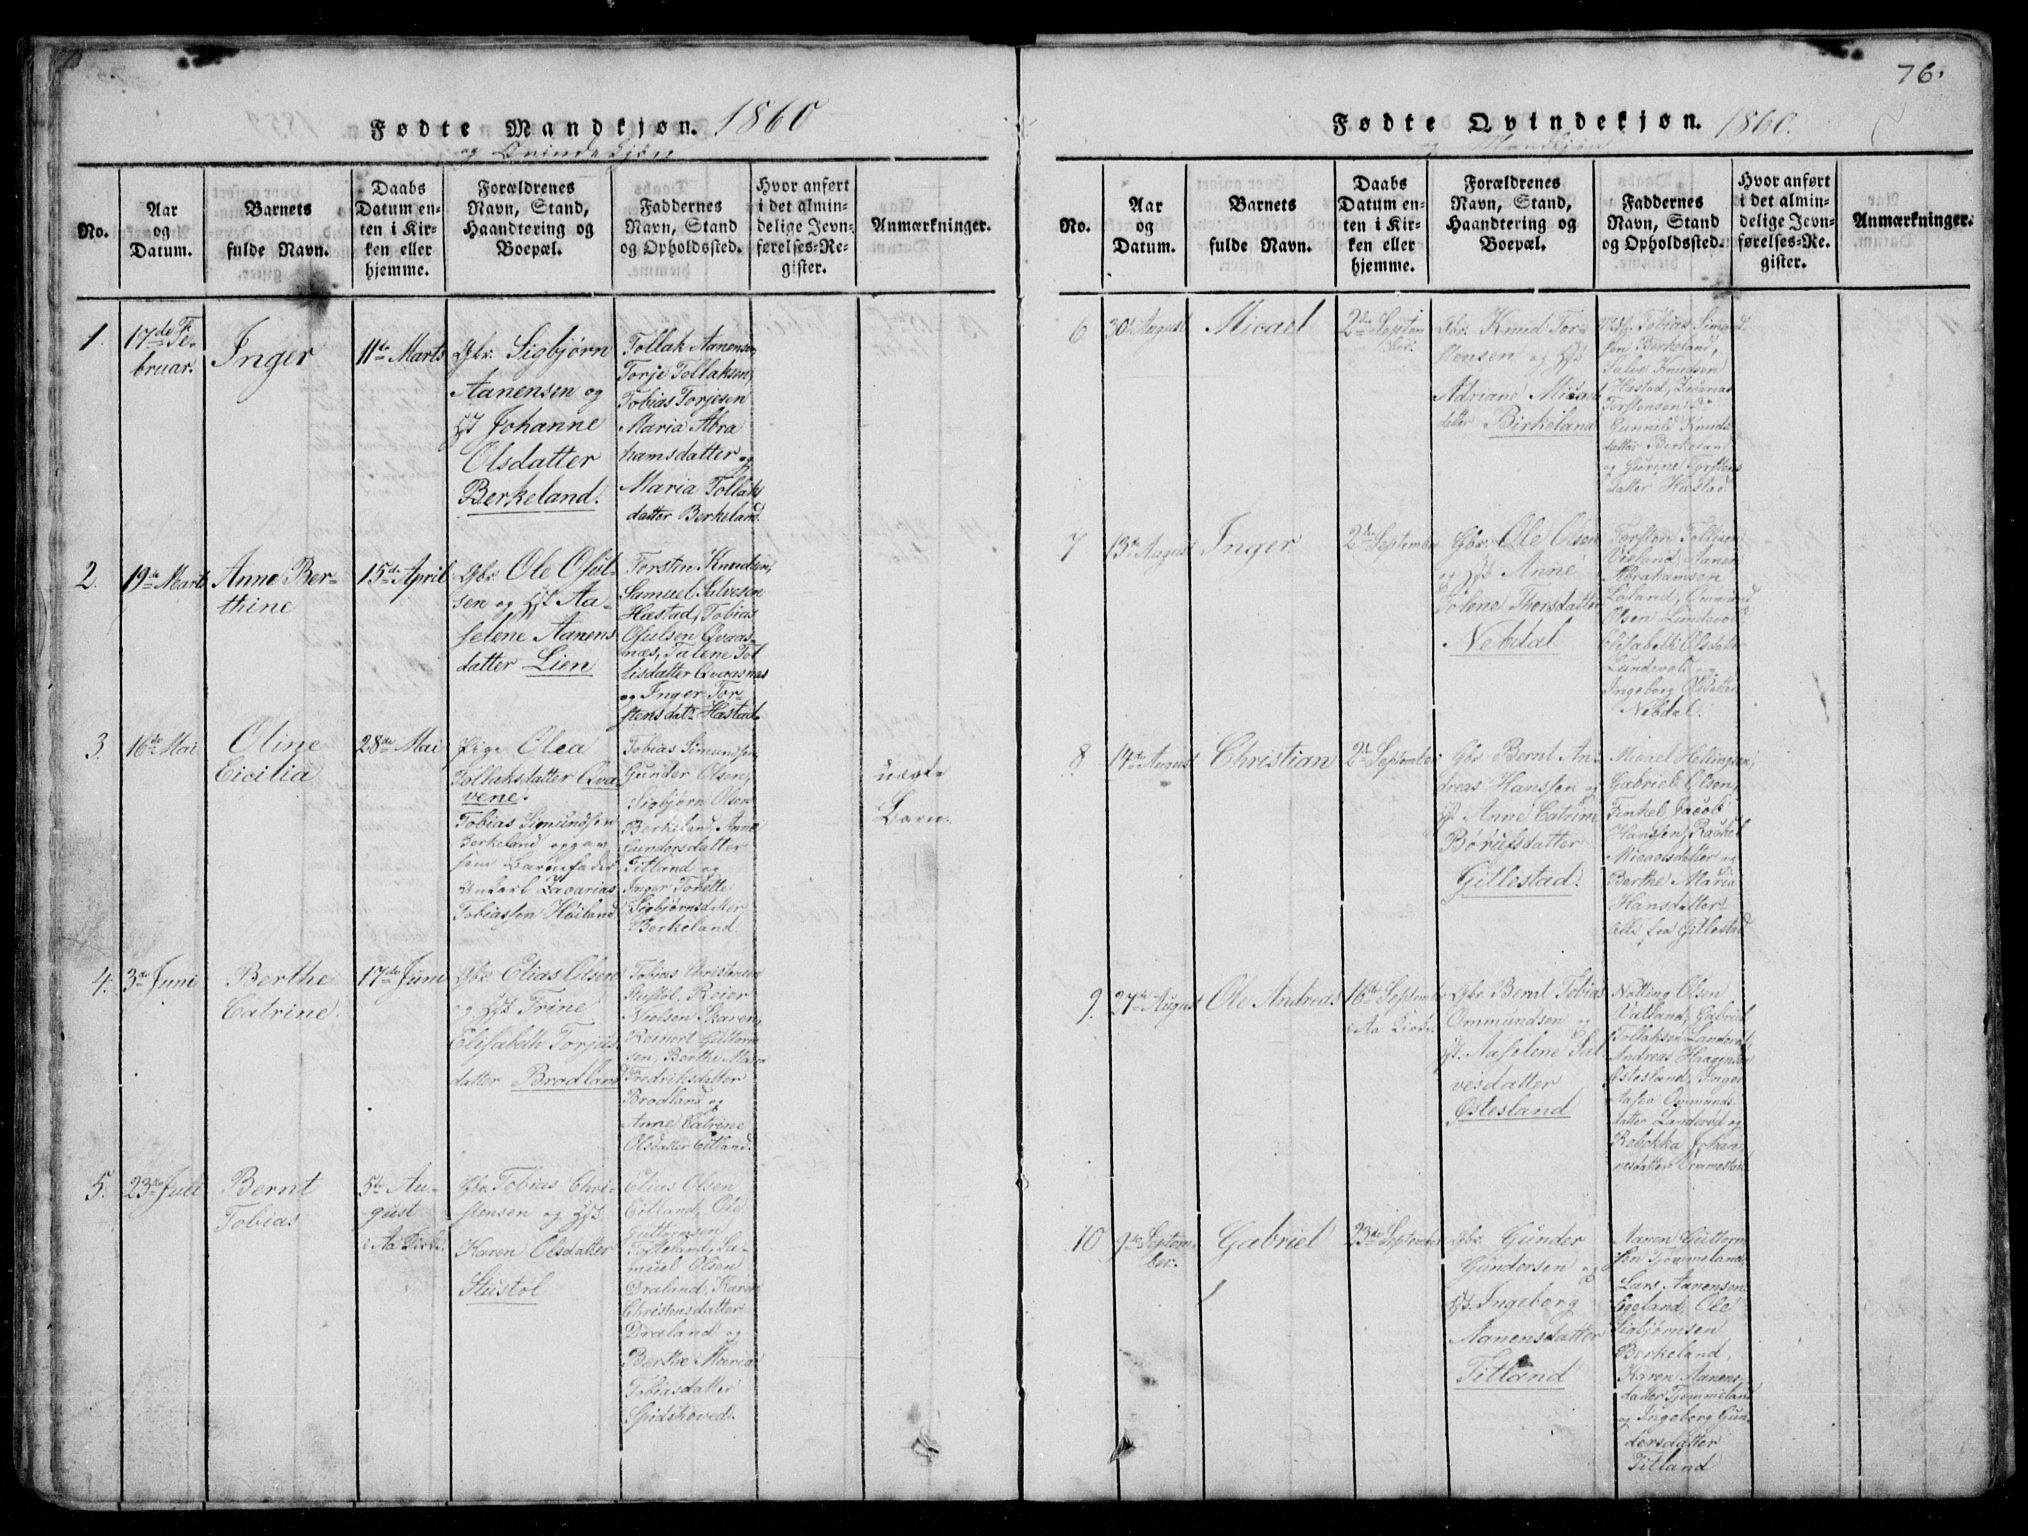 Fødte Mandkjøn. 1860
og Qvindekjøn
No.
Aar
og
Datum.
Barnets
fulde Navn.
Daabs
Datum en-
ten i Kir-
ken eller
hjemme.
Forældrenes
Navn, Stand,
Haandtering og
Boepæl.
Faddernes
Navn, Stand
og Opholdssted.
Hvor anført
i det almin-
delige Jevn-
førelses-Re-
gister.
Anmærkninger.
1.
17de Fe-
bruar.
Inger
11te Marts
Gbr. Sigbjørn
Aanensen og
Johanne
Olsdatter
Berkeland.
Tollak Aanensen,
Torje Tollaksen,
Tobias Torjesen
Maria Abra
hamsdatter og
Maria Tollaks
datter Berkeland.
2.
19de Marts
Anne Ber-
thine
15de April
Gbr. Ole Oful-
sen og Aa-
selene Aanens
datter Lien
Torsten Knudsen,
Samuel Salvesen
Hæstad, Tobias
Ofulsen Qveras-
næs, Talene Tol
lisdatter Qverasnæs
og Inger Tor-
stensdatr Hæstad.
3
16de Mai
Oline
Cicilia
28de Mai
Pige Olea
Tollaksdatter Qva
vene.
Tobias Simundsen
Berkeland opgav
som Barnefader
Zacarias
Tobiassen Høiland
Tobias Simundsen,
Gunder Olsen,
Sigbjørn Olsen
Berkeland, Anne
Gundersdatter
Titland og
Inger Tonette
Sigbjørnsdatter
Berkeland
uægte
Barn.
4.
3de Juni
Berthe
Catrine.
17de Juni
Gbr. Elias Olsen
og Trine
Elisabeth Torjus
datter Brodland
Tobias Christensen
Stustøl, Reier
Nielsen Skaren,
Reinert Guttorm
sen, Berthe Maria
Fredriksdatter
Brodland og
Anne Catrine
Olsdatter Eitland.
5.
23de Juli
Bernt
Tobias
5te Au-
gust
i Aa Kirke.
Gbr. Tobias Chri-
stensen og
Karen Olsdatter
Stustøl
Elias Olsen
Eitland, Ole
Guttormsen
Sa-
muel Olsen
Draland, Karen
Christensdatter
Draland og
Berthe Maria
Tobiasdatter
Spidshoved.
76.
Fødte Qvindekjøn. 1860.
og Mandkjøn
No.
Aar
og
Datum.
Barnets
fulde Navn.
Daabs
Datum en-
ten i Kir-
ken eller
hjemme.
Forældrenes
Navn, Stand,
Haandtering og
Boepæl.
Faddernes
Navn, Stand
og Opholdssted.
Hvor anført
i det almin-
delige Jevn-
førelses-Re-
gister.
Anmærkninger.
6
30te August
Micael
2de Septem
ber.
Gbr. Knud Tor-
stensen og
Adriane Micaels
datter Birkeland
Tobias Simund
sen Berkeland,
Salve Knudsen
Hæstad, Zacarias
Torstensen do
Gunnild Knuds
datter Berkeland
og Gurine Torstens
datter Hæstad
7
13de August
Inger
2de September
Gbr. Ole Olsen
og Anne
Tolene Thorsdatter
Nebdal
Torsten Tollisen
Aanen
Abrahamsen
Løland, Ommund
Olsen Lundevold
Elisabeth Olsdatter
Lundevold og
Ingeborg Olsdatter
Nebdal.
8
14de August
Christian
2de September
Gbr. Bernt An-
dreas Hanssen og
Anne Catrine
Børufsdatter
Gillestad.
Micael Hellingsen,
Gabriel Olsen,
Tinkel Jacob
Hanssen, Rachel
Micaelsdatter og
Berthe Maria
Hansdatter
alle fra Gillestad
9.
27de August
Ole Andreas
16de September
i Aa Kirke.
Gbr. Bernt Tobias
Ommundsen og
Aaselene Sal-
vesdatter
Østesland
Notting Olsen
Vatland, Gabriel
Tollaksen Landerøt,
Andreas Haagensen
Østesland, Inger
Aasea Ommunds
datter Landerøt og
Rebekka Johan-
nesdatter Ommestad
10
9de Septem-
ber.
Gabriel
23de September
Gbr. Gunder
Gundersen og
Ingeborg
Aanensdatter
Titland
Aanen Guttorm
sen Tjømmeland,
Lars Aanensen
Egeland, Ole
Sigbjørnsen
Berkeland,
Karen Aanens-
datter Tjømmeland
og Ingeborg Gun
dersdatter
Titland